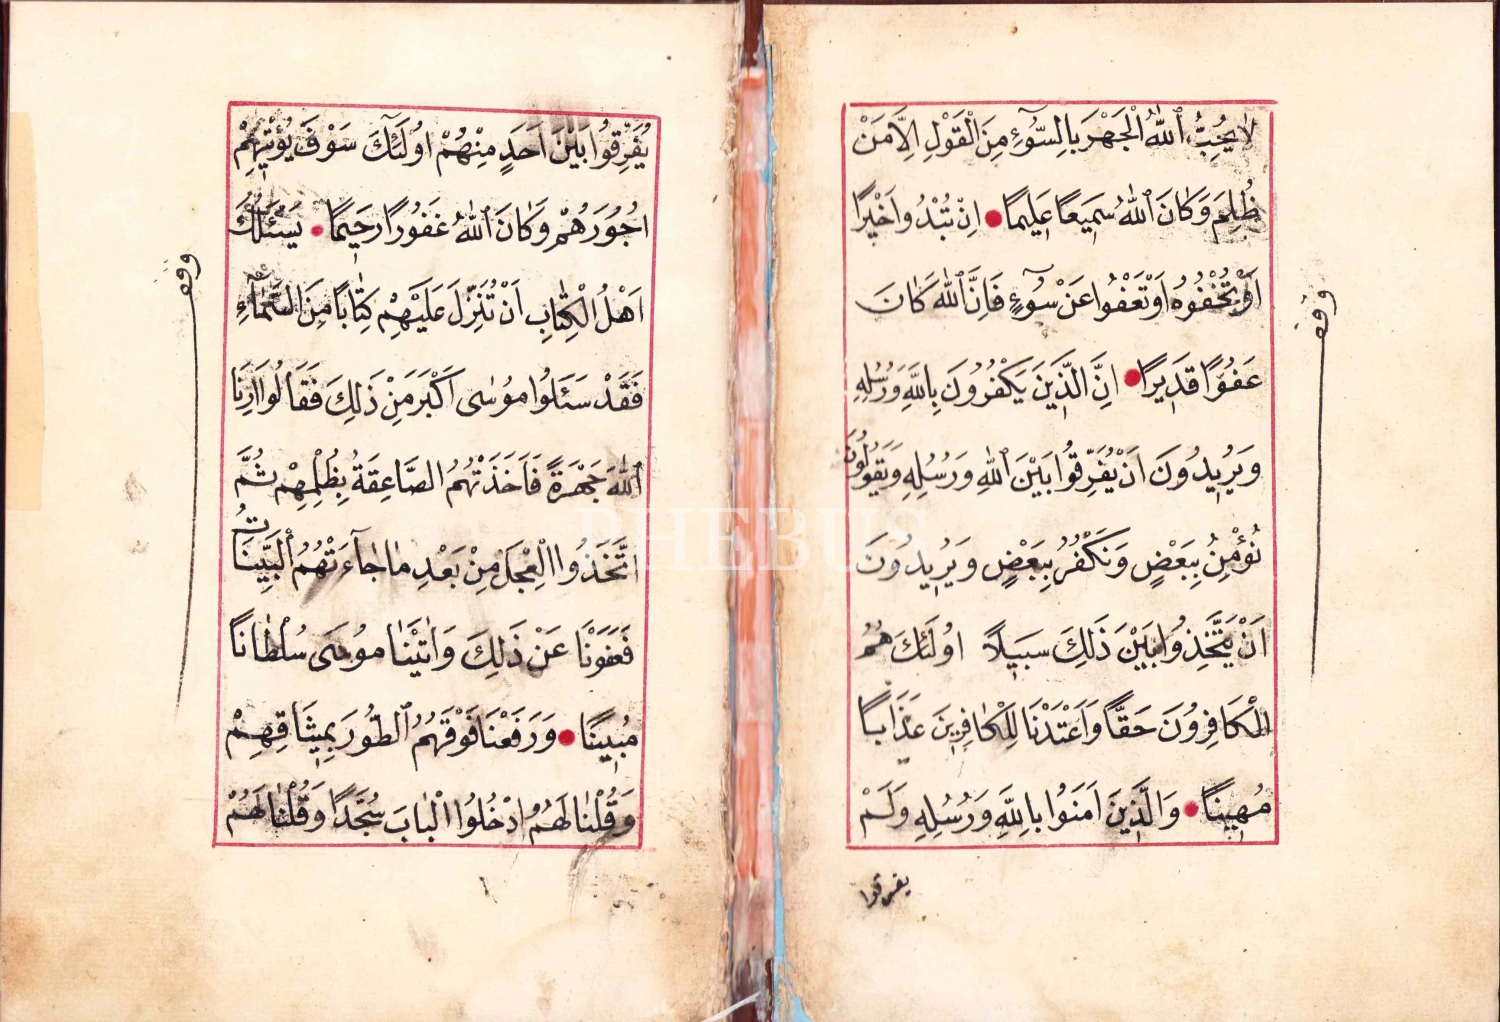 لَا يُحِبُّ ٱللّٰهُ الْجَهْرَ بِالسُّوٓءِ مِنَ الْقَوْلِ اِلَّا مَنْ
ظُلِمَ وَكَانَ ٱللّٰهُ سَمِيعًا عَلِيمًا اِنْ تُبْدُوا خَيْرًا
اَوْ تُخْفُوهُ اَوْ تَعْفُوا عَنْ سُوٓءٍ فَاِنَّ ٱللّٰهَ كَانَ
عَفُوًّا قَدِيرًا اِنَّ الَّذِينَ يَكْفُرُونَ بِاللّٰهِ وَرُسُلِهِ
وَيُرِيدُونَ اَنْ يُفَرِّقُوا بَيْنَ ٱللّٰهِ وَرُسُلِهِ وَيَقُولُونَ
نُؤْمِنُ بِبَعْضٍ وَنَكْفُرُ بِبَعْضٍ وَيُرِيدُونَ
اَنْ يَتَّخِذُوا بَيْنَ ذَلِكَ سَبِيلًا اُولَئِكَ هُمُ
الْكَافِرُونَ حَقًّا وَاَعْتَدْنَا لِلْكَافِرِينَ عَذَابًا
مُهِينًا وَالَّذِينَ اٰمَنُوا بِاللّٰهِ وَرُسُلِهِ وَلَمْ
يفرقوا
وقف
يُفَرِّقُوا بَيْنَ اَحَدٍ مِنْهُمْ اُولَئِكَ سَوْفَ يُؤْتِيهِمْ
اُجُورَهُمْ وَكَانَ ٱللّٰهُ غَفُورًا رَحِيمًا يَسْئَلُكَ
اَهْلُ الْكِتَابِ اَنْ تُنَزِّلَ عَلَيْهِمْ كِتَابًا مِنَ السَّمَآءِ
فَقَدْ سَئَلُوا مُوسَى اَكْبَرَ مِنْ ذَلِكَ فَقَالُوا اَرِنَا
ٱللّٰهَ جَهْرَةً فَاَخَذَتْهُمُ الصَّاعِقَةُ بِظُلْمِهِمْ ثُمَّ
اتَّخَذُوا الْعِجْلَ مِنْ بَعْدِ مَا جَآءَتْهُمُ الْبَيِّنَاتُ
فَعَفَوْنَا عَنْ ذَلِكَ وَاٰتَيْنَا مُوسَى سُلْطَانًا
مُبِينًا وَرَفَعْنَا فَوْقَهُمُ ٱلطُّورَ بِمِيثَاقِهِمْ
وَقُلْنَا لَهُمُ ادْخُلُوا الْبَابَ سُجَّدًا وَقُلْنَا لَهُمْ
وقف
PHEBUS